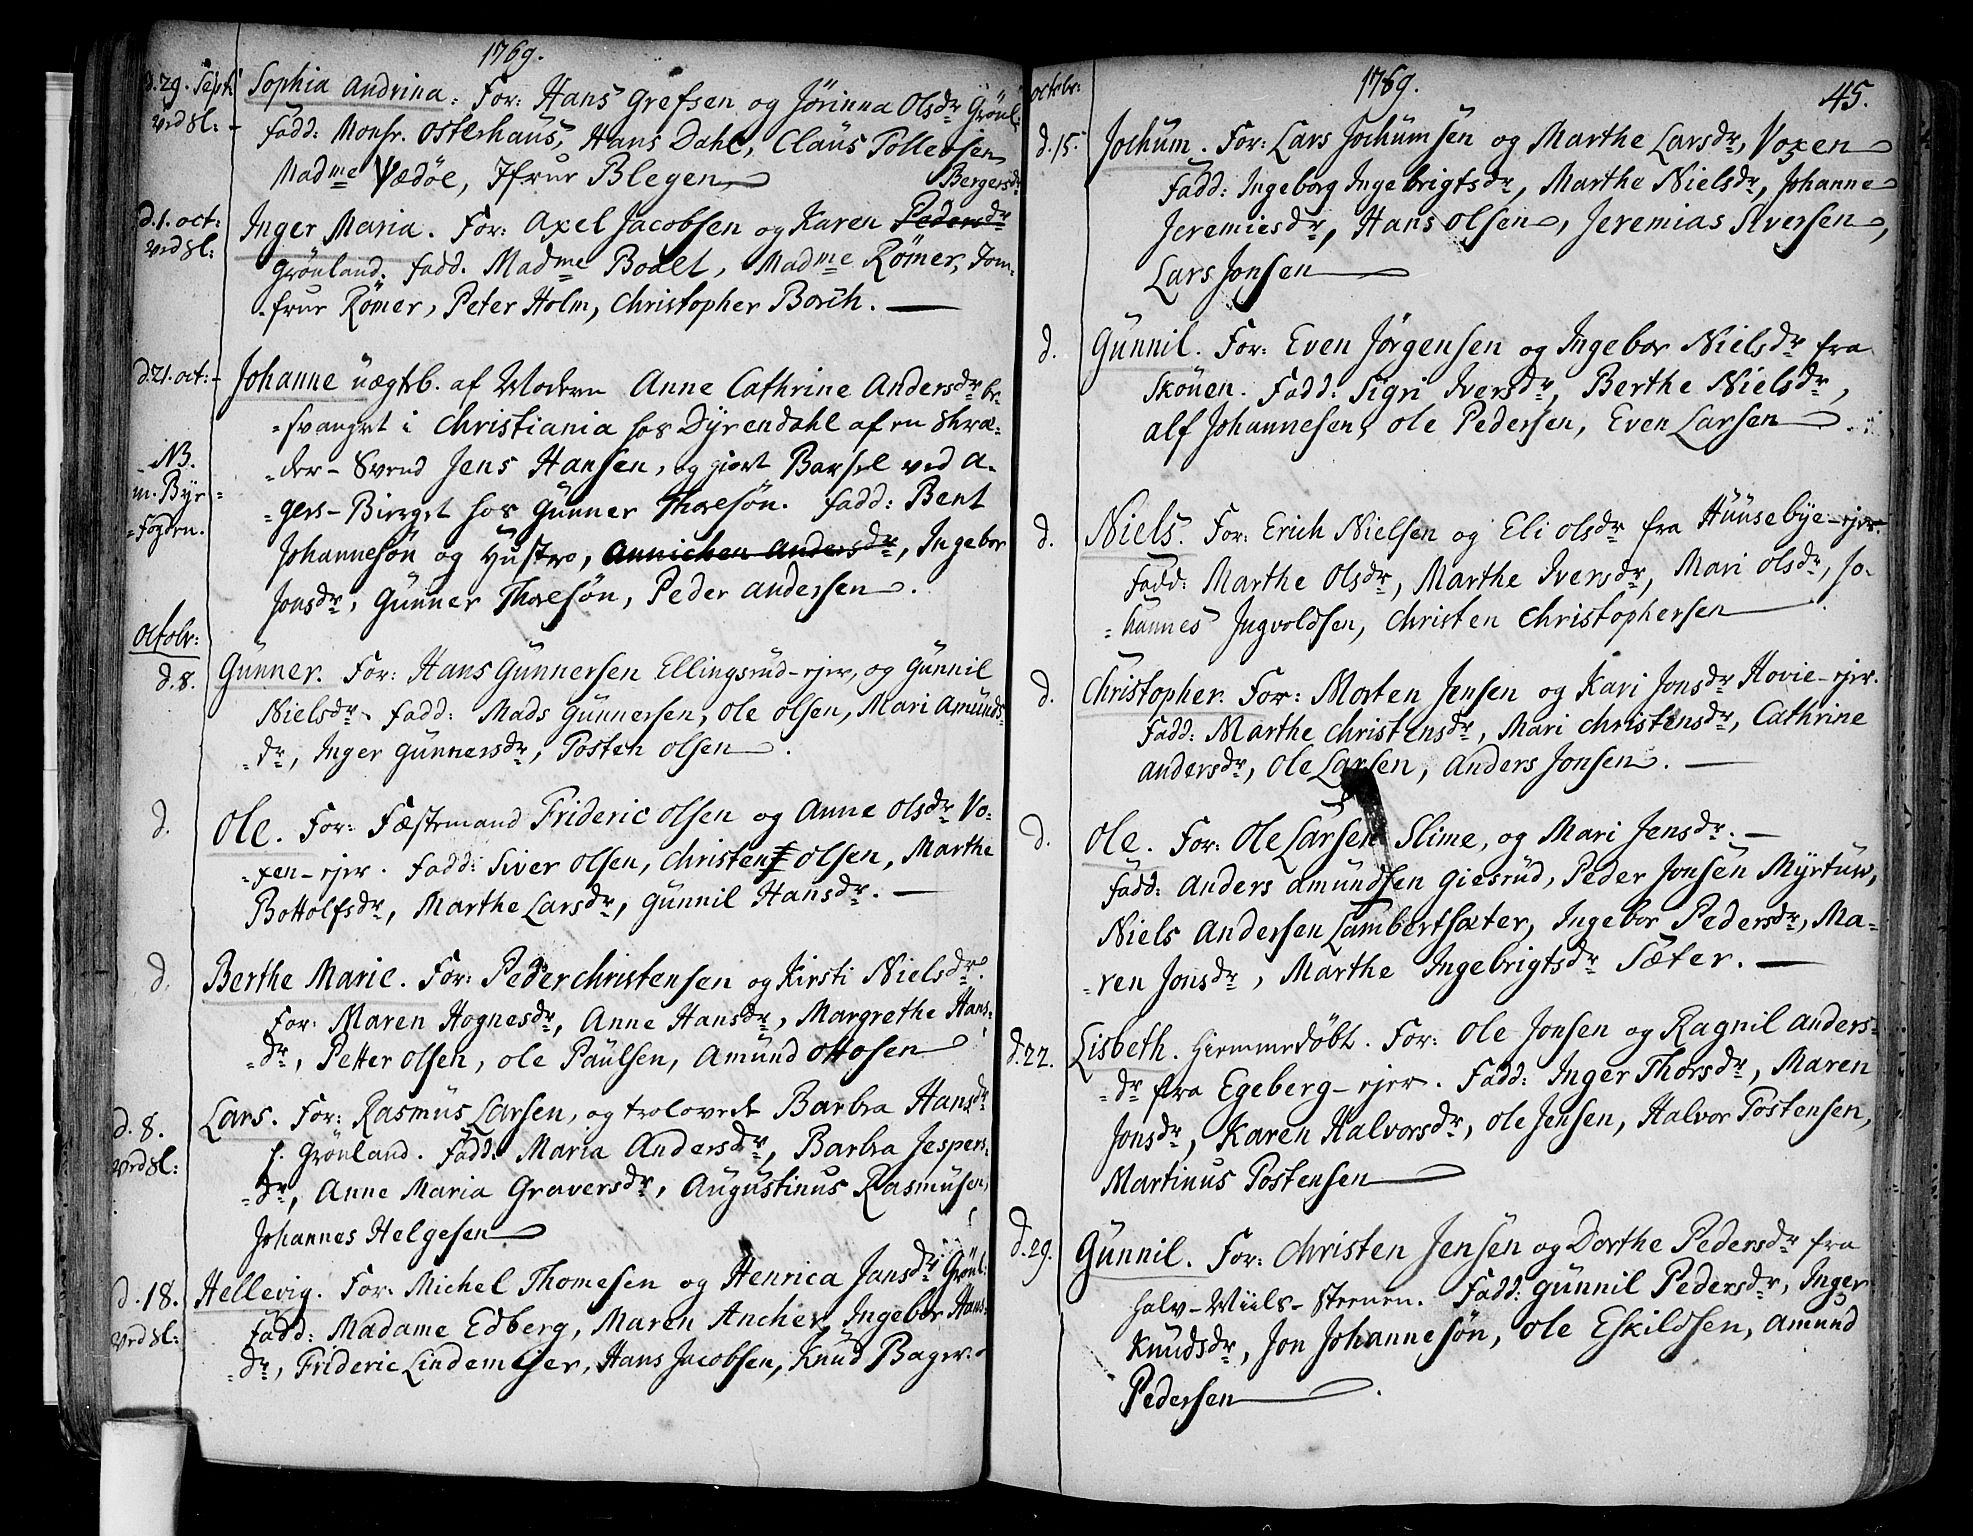 1769.
d. 29. Sept: Sophia Andrina. For: Hans Grefsen og Jörinna Olsdr Grönl:
ved Sl: Fadd: Monsr. Osterhaus, Hans Dahl, Claus Tollevsen
Madme Vædöe, Jfrur Blegen
Bergersdr
d. 1. oct: Inger Maria. For: Axel Jacobsen og Karen Pedersdr
ved Sl: Grönland. Fadd. Madme Boalt, Madme Römer, Jom-
-frur Römer, Peter Holm, Christopher Borch.
d. 21. oct: Johanne uægtb. af Modern Anne Cathrine Andersdr be-
-svangret i Christiania hos Dyrendahl af en Skræ-
NB. -der-Svend Jens Hansen, og giort Barsel ved A-
m. Bye- -gers-Bierget hos Gunner Thoresön. Fadd: Bent
-Fogden. Johannesön og Hustro, Annichen Andersdr, Ingebor
Jonsdr, Gunner Thoresön, Peder Andersen.
Octobr:
d. 8. Gunner. For: Hans Gunnersen Ellingsrud-ejer, og Gunnil
Nielsdr. Fadd: Mads Gunnersen, Ole Olsen, Mari Amunds-
-dr, Inger Gunnersdr, Tosten Olsen.
d. Ole. For: Fæstemand Frideric Olsen og Anne Olsdr Vo-
-xen-ejer. Fadd: Siver Olsen, Christen Olsen, Marthe
Bottolfsdr, Marthe Larsdr, Gunnil Hansdr.
d. Berthe Marie. For: Peder Christensen og Kirsti Nielsdr.
For: Maren Hognesdr, Anne Hansdr, Margrethe Hans-
-dr, Petter Olsen, Ole Paulsen, Amund Ottosen
d. 8. Lars. For: Rasmus Larsen, og trolovede Barbra Hansdr
ved Sl: f. Grönland. Fadd: Maria Andersdr, Barbra Jespers-
-dr, Anne Maria Graversdr, Augustinus Rasmusen,
Johannes Helgesen
d. 18. Hellevig. For: Michel Thomesen og Henrica Jansdr Grönl:
ved Sl: Fadd: Madame Edberg, Maren Ancher, Ingebor Hans-
-dr, Frideric Lindemejer, Hans Jacobsen, Knud Bager.
1769. 45.
octobr:
d. 15. Jochum. For: Lars Jochumsen og Marthe Larsdr, Voxen
Fadd: Ingeborg Ingebrigtsdr, Marthe Nielsdr, Johanne
Jeremiesdr, Hans Olsen, Jeremias Siversen,
Lars Jonsen
d. Gunnil. For: Even Jörgensen og Ingebor Nielsdr fra
Sköuen. Fadd: Sigri Iversdr, Berthe Nielsdr,
Alf Johannesen, Ole Pedersen, Even Larsen
d. Niels. For: Erich Nielsen og Eli Olsdr fra Huusebye-ejer.
Fadd: Marthe Olsdr, Marthe Iversdr, Mari Olsdr, Jo-
-hannes Ingvoldsen, Christen Christophersen
d. Christopher. For: Morten Jensen og Kari Jonsdr Hovie-ejer.
Fadd: Marthe Christensdr, Mari Christensdr, Cathrine
Andersdr, Ole Larsen, Anders Jonsen.
d. Ole. For: Ole Larsen Slime, og Mari Jensdr.
Fadd: Anders Amundsen Giesrud, Peder Jonsen Myrtuw,
Niels Andersen Lambertsæter, Ingebor Pedersdr, Ma-
-ren Jonsdr, Marthe Ingebrigtsdr Sæter.
d. 22. Lisbeth. hiemmedöbt. For: Ole Jonsen og Ragnil Anders-
-dr fra Egeberg-ejer. Fadd: Inger Thorsdr, Maren
Jonsdr, Karen Halvorsdr, Ole Jensen, Halvor Tostensen,
Martinus Tostensen
d. 29. Gunnil. For: Christen Jensen og Dorthe Pedersdr fra
halv-Miils-Steenen. Fadd: Gunnil Pedersdr, Inger
Knudsdr, Jon Johannesön, Ole Eskildsen, Amund
Pedersen